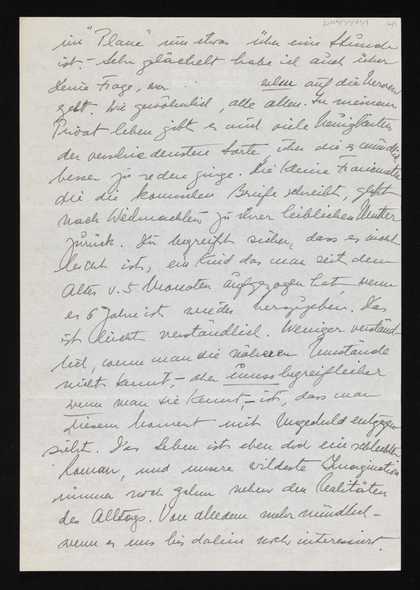 im "Plane" um etwas über eine Stunde
ist. – Sehr gelächelt habe ich auch über
deine Frage, wer . . wem auf die Nerven
geht. Wie gewöhnlich, alle allen. In meinem
Privatleben gibt es auch viele Neuigkeiten
der verschiedensten Sorte, über die es mündlich
besser zu reden ginge. Die kleine Franiceska
die die komischen Briefe schreibt, geht
nach Weihnachten zu ihrer leiblichen Mutter
zurück. Du begreifst sicher, dass es nicht
leicht ist, ein Kind das man seit dem
Alter v. 5 Monaten aufgezogen hat, wenn
es 6 Jahre ist wieder herzugeben. Das
ist leicht verständlich. Weniger verständ
lich, wenn man die näheren Umstände
nicht kennt, – aber umso begreiflicher
wenn man sie kennt, – ist, dass man
diesem Moment mit Ungeduld entgegen
sieht. Das Leben ist eben doch ein schlechter
Roman, und unsere wildeste Imagination
immer noch zahm neben den Realitäten
des Alltags. Von alledem mehr mündlich –
wenn es uns bis dahin noch interessiert.